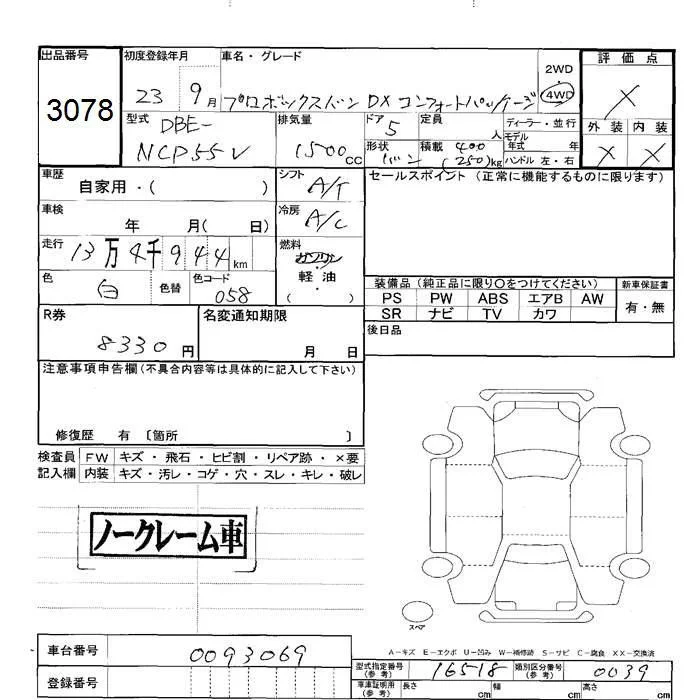 出品番号
3078
初度登録年月
23 9月
車名・グレード
プロボックスバン DX コンフォートパッケージ
2WD
4WD
評価点
X
外装 内装
X X
型式
DBE-
NCP55V
排気量
1500cc
ドア
5
形状
バン
定員
人
積載 400
(250)kg
ディーラー・並行
モデル
年式 年
ハンドル 左・右
車歴
自家用・( )
シフト
A/T
車検
年 月( 日)
冷房
A/C
走行
13万4千944km
燃料
ガソリン
・
軽油
・
( )
色
白
色替
色コード
058
セールスポイント (正常に機能するものに限ります)
装備品 (純正品に限り〇をつけてください)
PS PW ABS エアB AW
SR ナビ TV カワ
新車保証書
有・無
後日品
R券
8330円
名変通知期限
月 日
注意事項申告欄(不具合内容等は具体的に記入して下さい)
修復歴 有 〔箇所 〕
検査員
記入欄
FW キズ・飛石・ヒビ割・リペア跡・×要
内装 キズ・汚レ・コゲ・穴・スレ・キレ・破レ
ノークレーム車
スペア
A-キズ E-エクボ U-凹み W-補修跡 S-サビ C-腐食 XX-交換済
車台番号
0093069
型式指定番号
(参考)
16518
類別区分番号
(参考)
0039
登録番号
車庫証明用
(参考)
長さ cm
幅 cm
高さ cm